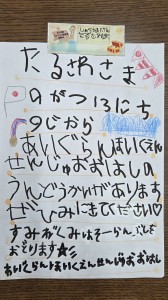 たるさわさま
のがつ13にち
9じから
あいぐらんほいくえん
せんじゅおおはしの
うんどうかいがあります
ぜひみにきてください♡
すみれぐみはそーらんぶしを
おどります★彡
あいぐらんほいくえんせんじゅおおはし